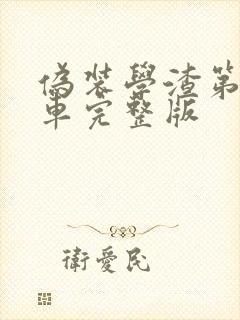 偽裝學渣第
車完整版
衛愛民